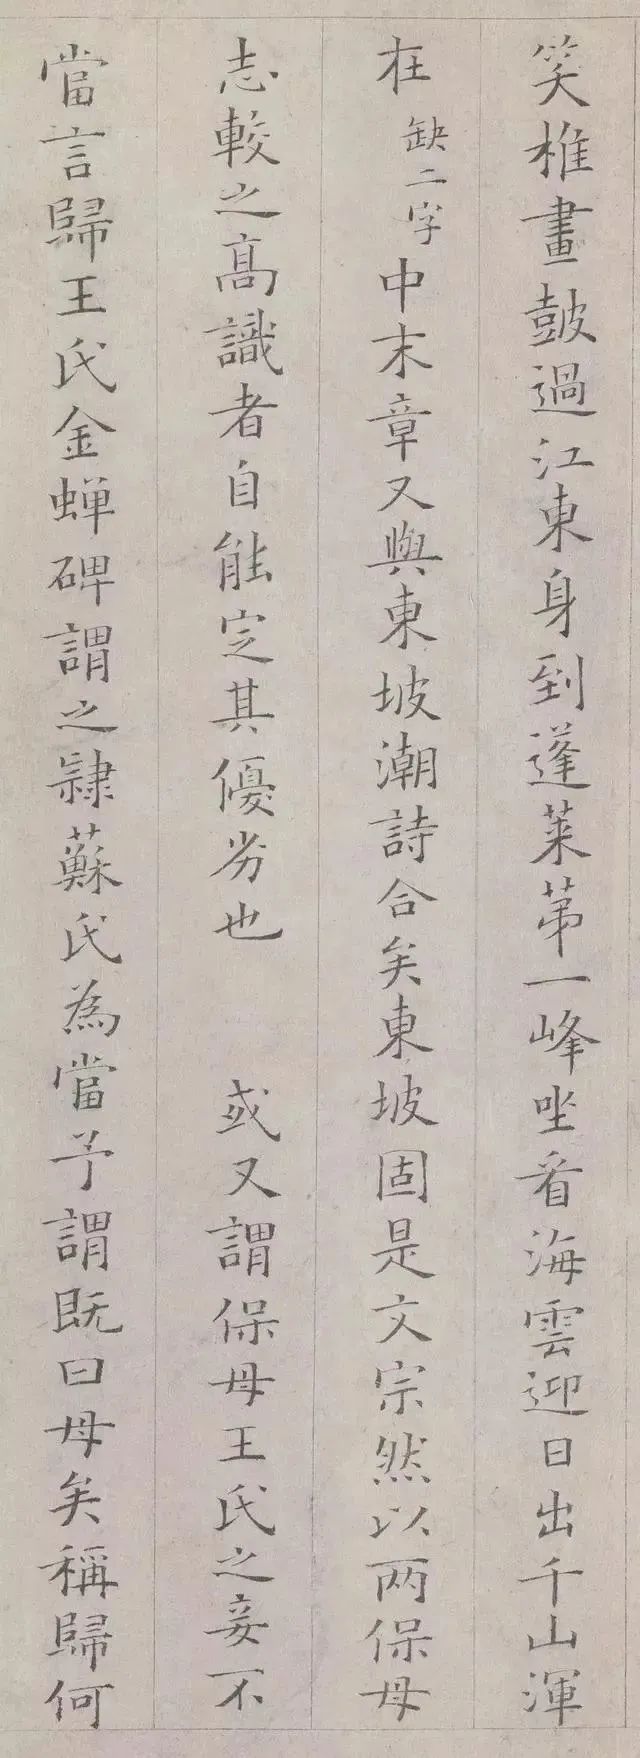 笑椎畫皷過江東身到蓬萊苐一峰坐看海雲迎日出千山渾
在缺二字中末章又與東坡潮詩合矣東坡固是文宗然以两保母
志較之高識者自能定其優劣也 或又謂保母王氏之妾不
當言歸王氏金蝉碑謂之隷蘇氏為當予謂既曰母矣稱歸何